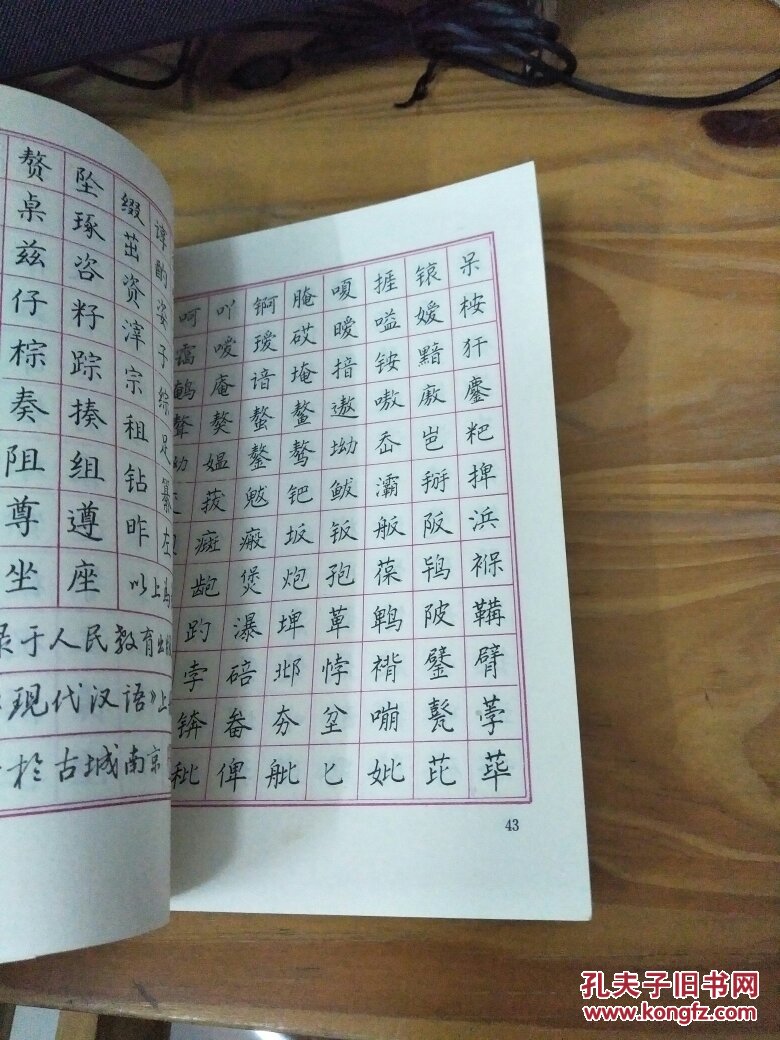 赘 坠 缀 谆
桌 琢 茁 酌
兹 咨 资 姿
仔 籽 滓 子
棕 踪 宗 综
奏 揍 租 足
阻 组 钻 纂
尊 遵 昨 左
坐 座 以上
录于人民教育出
现代汉语》上
於古城南京
呵 吖 锕 腌 嗄 捱 锿 呆
霭 嗳 瑷 砹 暧 嗌 嫒 桉
鹌 庵 谙 埯 揞 铵 黯 犴
聱 獒 螯 鳌 遨 嗷 廒 鏖
拗 媪 鏊 骜 坳 岙 岜 粑
菝 魃 钯 鲅 灞 掰 捭
癍 瘢 坂 钣 舨 阪 浜
龅 煲 炮 孢 葆 鸨 褓
趵 瀑 埤 萆 鹎 陂 鞴
孛 碚 邶 悖 褙 鐾 臂
锛 畚 夯 坌 嘣 甏 荸
秕 俾 舭 匕 妣 芘 荜
43
孔夫子旧书网
www.kongfz.com